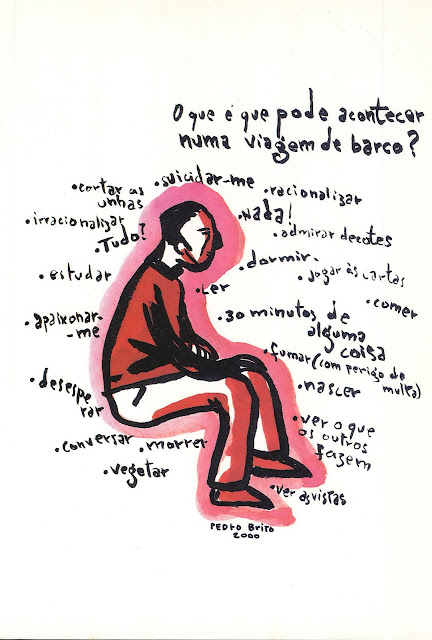 O que é que pode acontecer
numa viagem de barco?
• suicidar-me
• cortar as
unhas
• racionalizar
• irracionalizar
• Nada!
• Tudo?
• admirar decotes
• dormir.
• estudar
• jogar às cartas
• Ler
• comer
• apaixonar-
-me
• 30 minutos de
alguma
coisa
• fumar (com perigo de
multa)
• nascer
• desespe
rar
• ver o que
os outros
fazem
• conversar
• morrer
• vegetar
• ver as vistas
PEDRO BRITO
2000